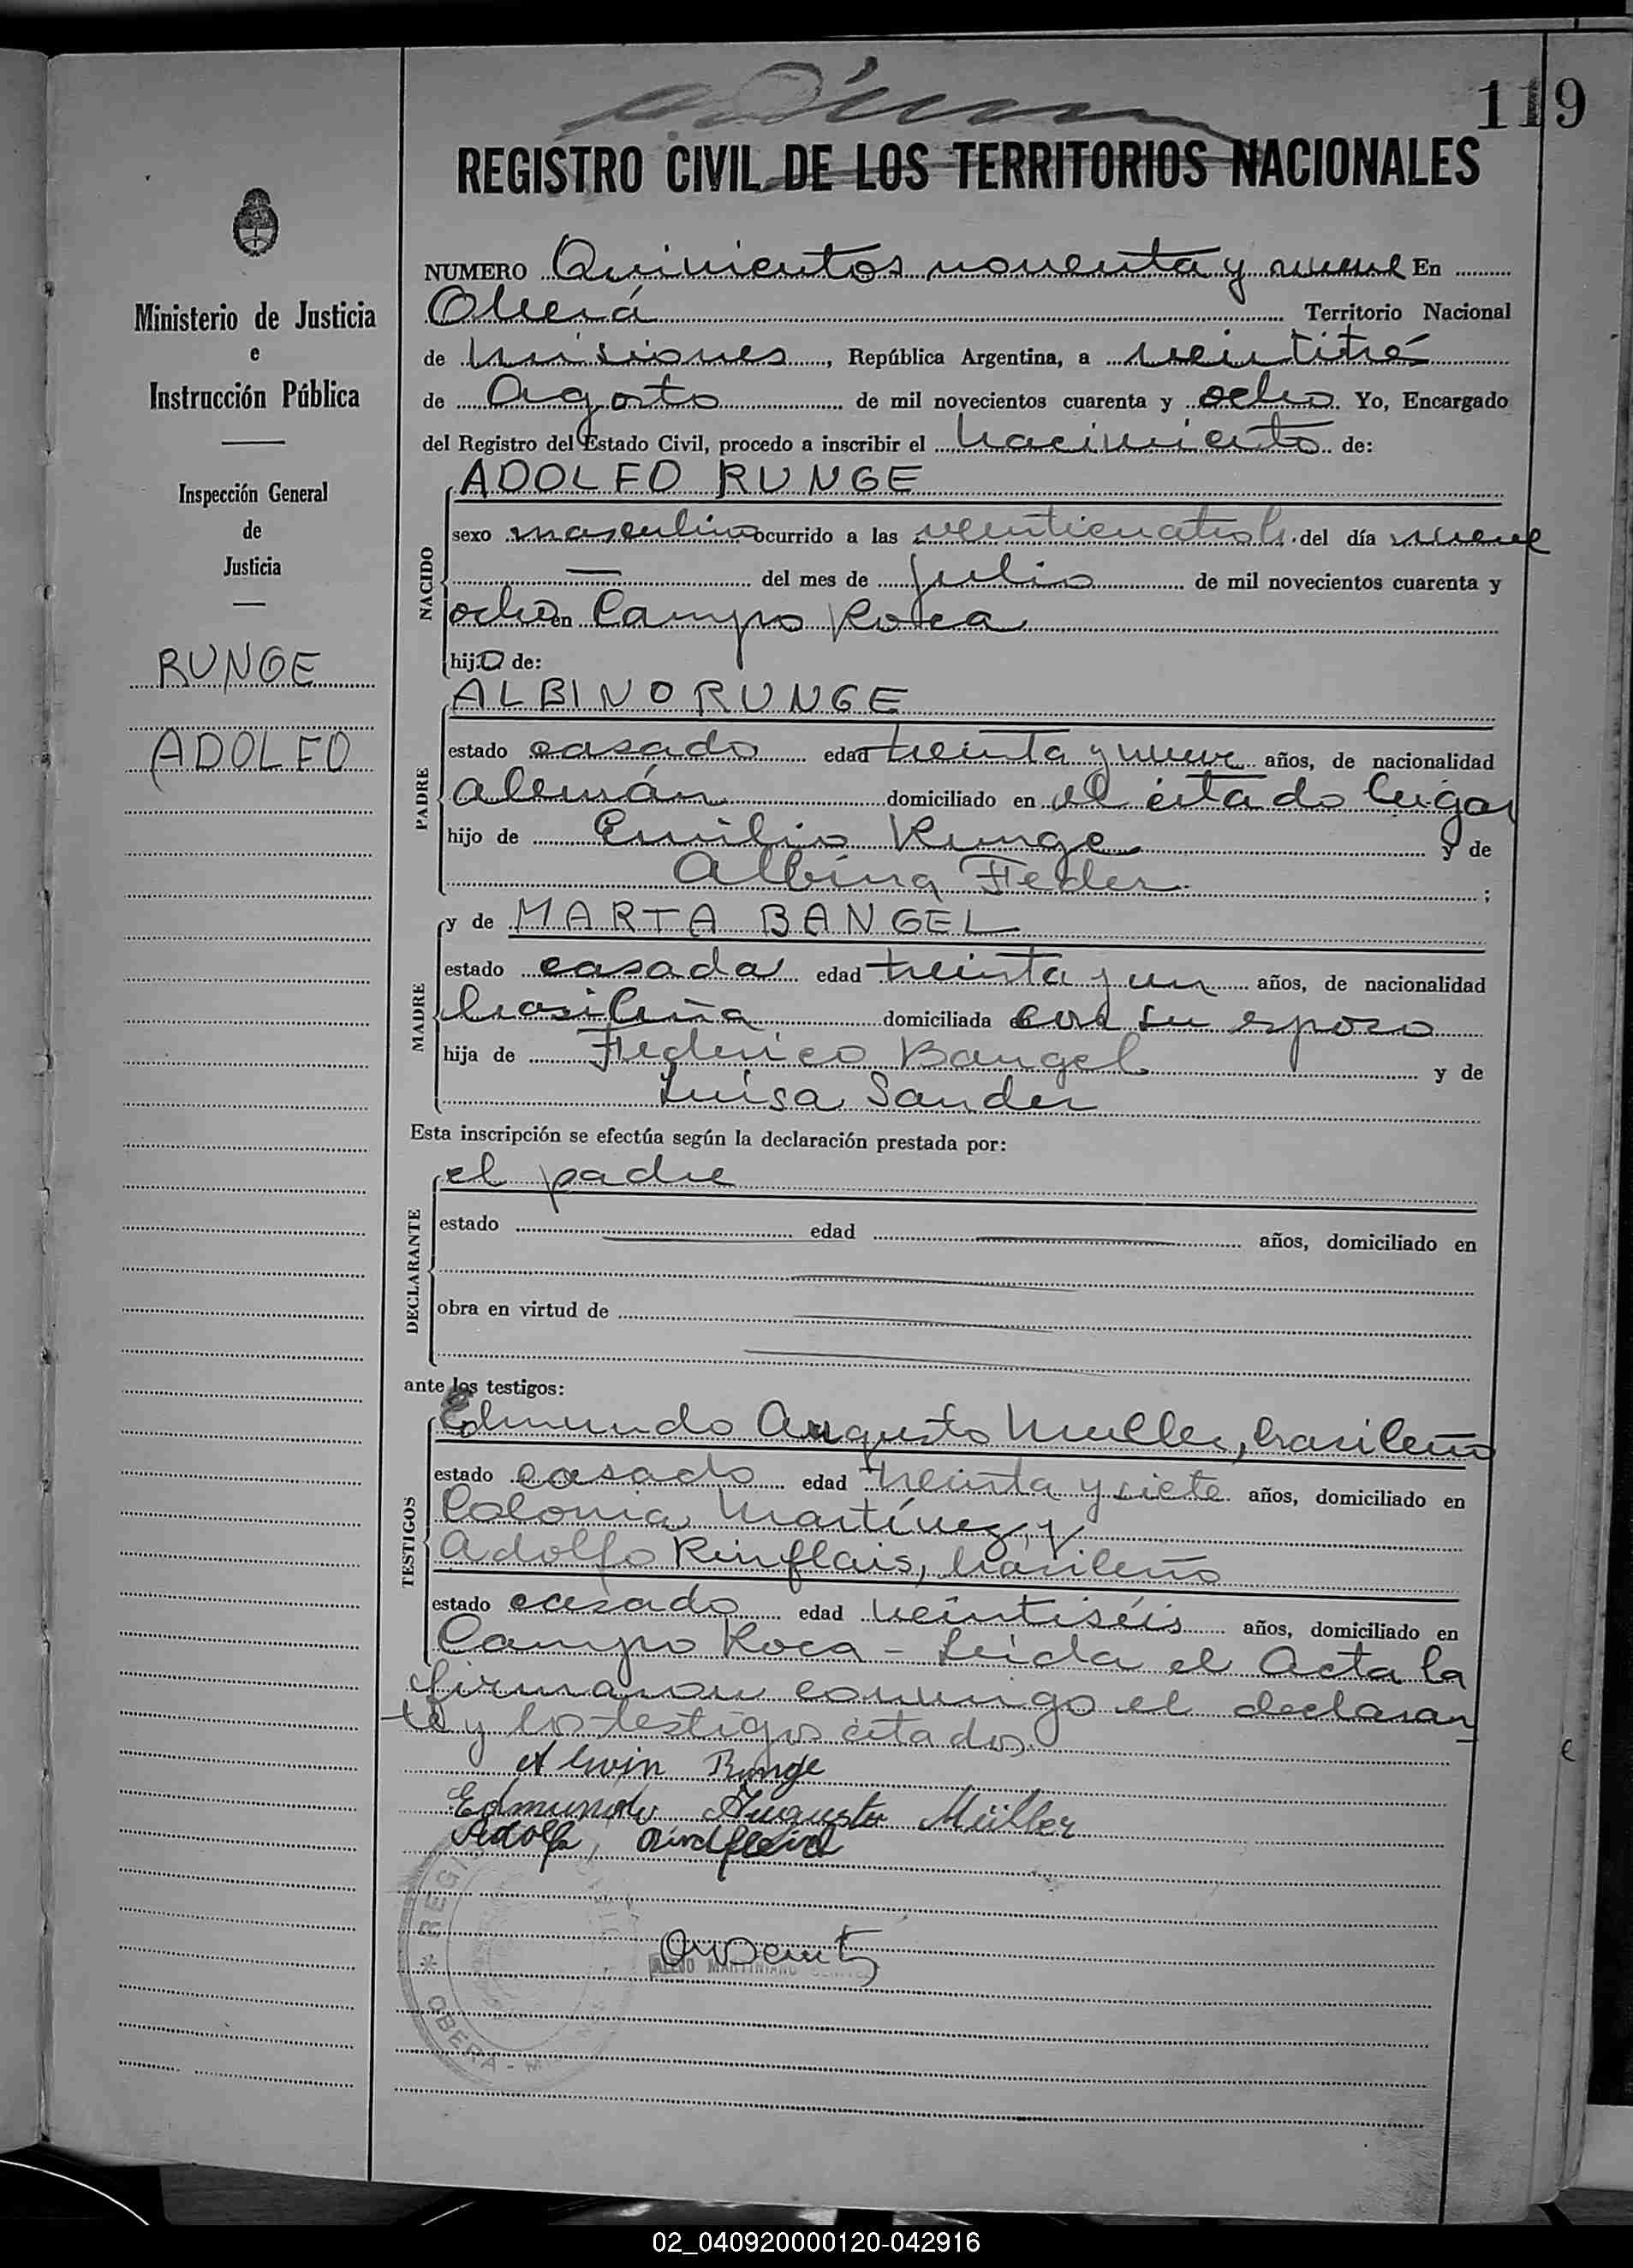 119
REGISTRO CIVIL DE LOS TERRITORIOS NACIONALES
Ministerio de Justicia
e
Instrucción Pública
Inspección General
de
Justicia
RUNGE
ADOLFO
NUMERO Quinientos noventa y nueve En
Oberá Territorio Nacional
de Misiones, República Argentina, a veintitrés
de Agosto de mil novecientos cuarenta y ocho Yo, Encargado
del Registro del Estado Civil, procedo a inscribir el nacimiento de:
NACIDO
ADOLFO RUNGE
sexo masculino ocurrido a las veinticuatro h. del día nueve
— del mes de julio de mil novecientos cuarenta y
ocho en Campo Roca
hijo de:
PADRE
ALBINO RUNGE
estado casado edad treinta y nueve años, de nacionalidad
alemán domiciliado en el citado lugar
hijo de Emilio Runge y de
Albina Feder ;
MADRE
y de MARTA BANGEL
estado casada edad treinta y un años, de nacionalidad
brasileña domiciliada con su esposo
hija de Federico Bangel y de
Luisa Sander
Esta inscripción se efectúa según la declaración prestada por:
DECLARANTE
el padre
estado edad años, domiciliado en
obra en virtud de
ante los testigos:
TESTIGOS
Edmundo Augusto Muller, brasileño
estado casado edad treinta y siete años, domiciliado en
Colonia Martínez, y
Adolfo Rinflais, brasileño
estado casado edad veintiséis años, domiciliado en
Campo Roca - Leida el Acta la
firmaron conmigo el declaran
te y los testigos citados.
Alwin Runge
Edmundo Augusto Müller
Adolfo
MARTINIANO
REGIS
OBERA - M
02_040920000120-042916